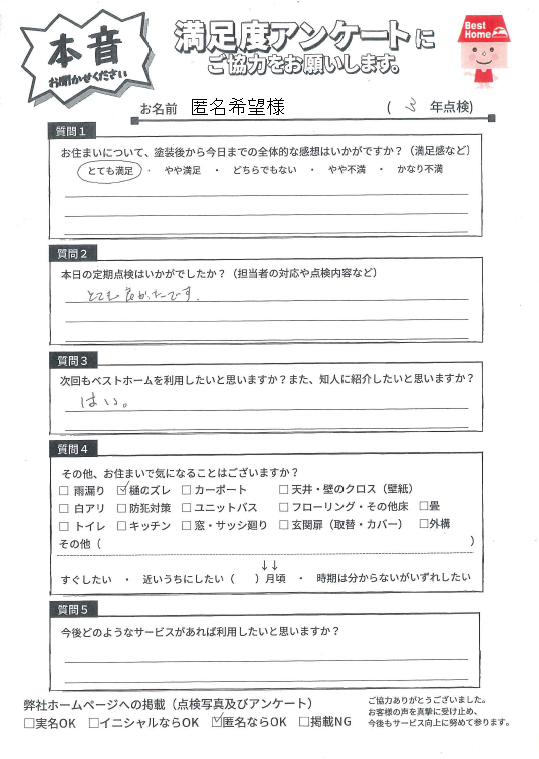 本音
お聞かせください
満足度アンケートに
ご協力をお願いします。
Best Home
お名前 匿名希望様 ( 3 年点検)
質問1
お住まいについて、塗装後から今日までの全体的な感想はいかがですか？（満足感など）
とても満足 ・ やや満足 ・ どちらでもない ・ やや不満 ・ かなり不満
質問2
本日の定期点検はいかがでしたか？（担当者の対応や点検内容など）
とても良かったです.
質問3
次回もベストホームを利用したいと思いますか？また、知人に紹介したいと思いますか？
はい。
質問4
その他、お住まいで気になることはございますか？
☐ 雨漏り ☑ 樋のズレ ☐ カーポート ☐ 天井・壁のクロス（壁紙）
☐ 白アリ ☐ 防犯対策 ☐ ユニットバス ☐ フローリング・その他床 ☐畳
☐ トイレ ☐ キッチン ☐ 窓・サッシ廻り ☐ 玄関扉（取替・カバー） ☐外構
その他（ ）
↓↓
すぐしたい ・ 近いうちにしたい（ ）月頃 ・ 時期は分からないがいずれしたい
質問5
今後どのようなサービスがあれば利用したいと思いますか？
弊社ホームページへの掲載（点検写真及びアンケート）
☐実名OK ☐イニシャルならOK ☑匿名ならOK ☐掲載NG
ご協力ありがとうございました。
お客様の声を真摯に受け止め、
今後もサービス向上に努めて参ります。